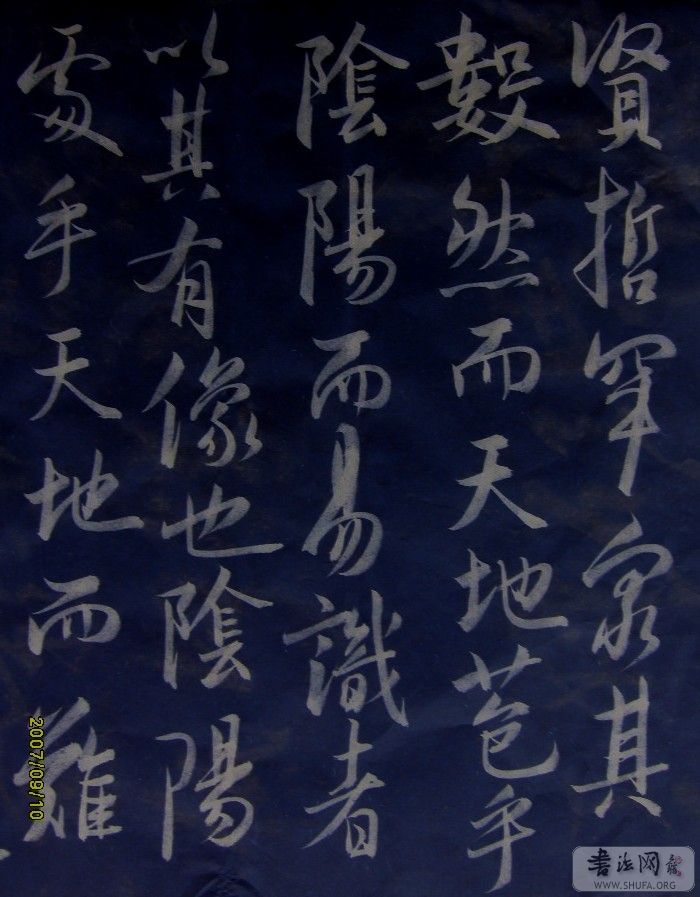 賢哲罕窮其
數然而天地苞乎
陰陽而易識者
以其有像也陰陽
處乎天地而難
2007/09/10
書法网
WWW.SHUFA.ORG